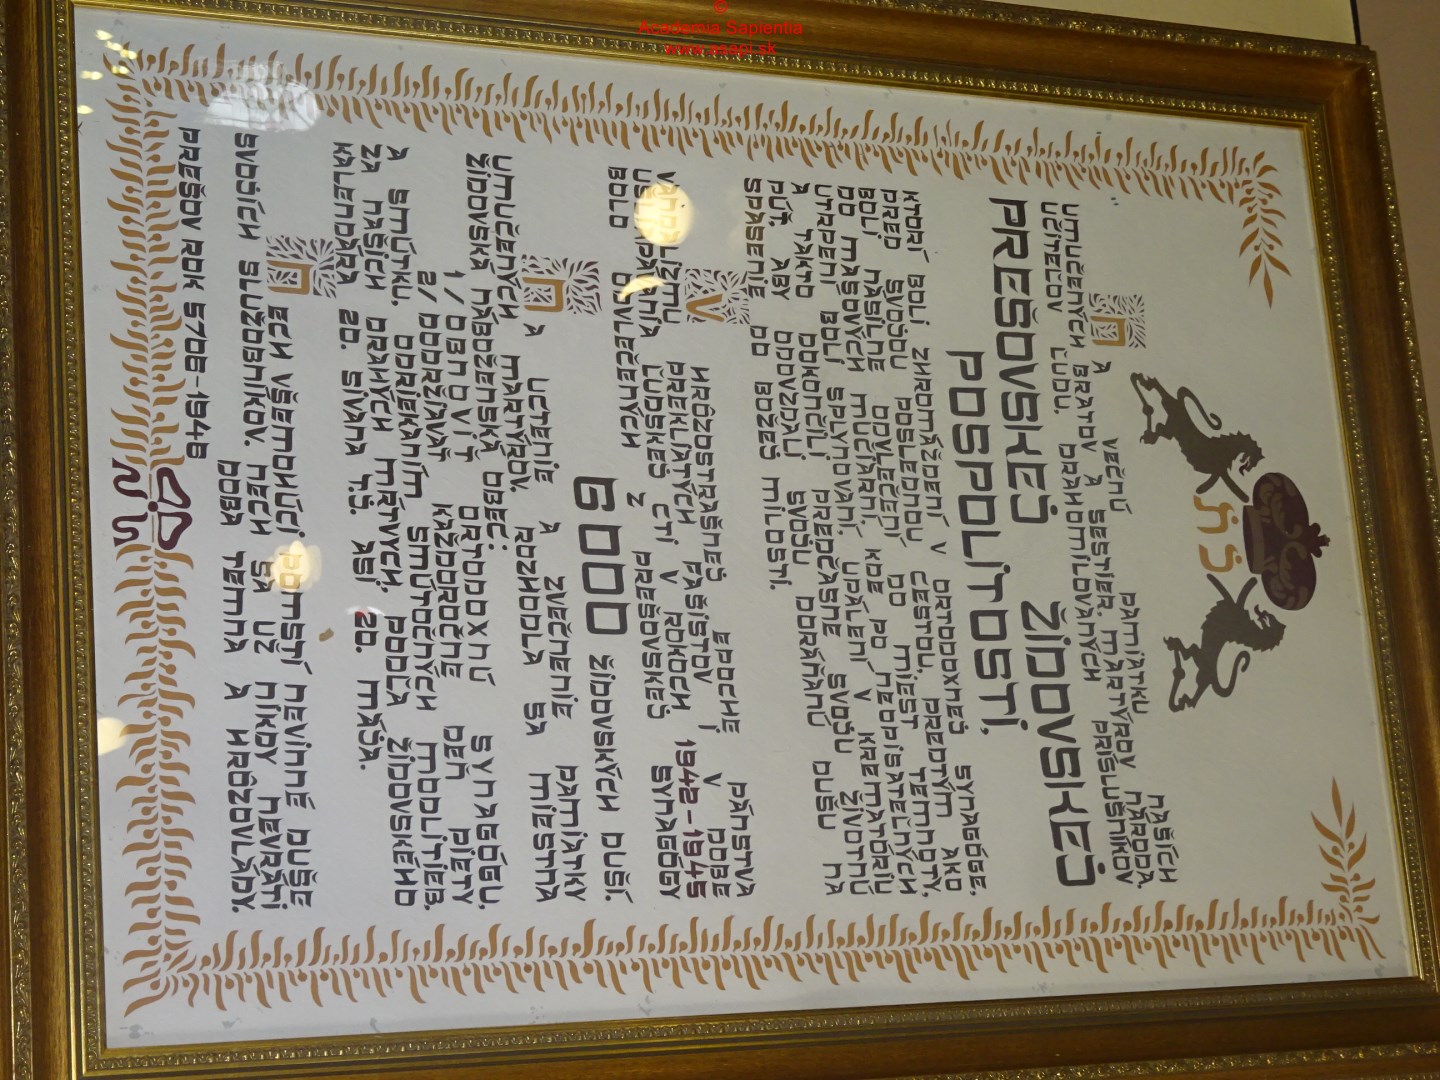 ©
Academia Sapientia
www.asapi.sk
NA VEČNÚ PAMIATKU NAŠICH
UMUČENÝCH BRATOV A SESTIER. MARTÝROV NÁRODA,
UČITEĽOV ĽUDU. DRAHOMILOVANÝCH PRÍSLUŠNÍKOV
PREŠOVSKEJ ŽIDOVSKEJ
POSPOLITOSTI,
KTORÍ BOLI ZHROMAŽDENÍ V ORTODOXNEJ SYNAGÓGE,
PRED SVOJOU POSLEDNOU CESTOU, PREDTÝM AKO
BOLI NÁSILNE ODVLEČENÍ DO MIEST TEMNOTY,
DO MASOVÝCH MUČIARNÍ, KDE PO NEOPÍSATEĽNÝCH
UTRPENÍ BOLI SPLYNOVANÍ, UPÁLENÍ V KREMATÓRIU
A TAKTO DOKONČILI PREDČASNE SVOJU ŽIVOTNÚ
PÚŤ. ABY ODOVZDALI SVOJU DORÁŇANÚ DUŠU NA
SPASENIE DO BOŽEJ MILOSTI.
V HRÔZOSTRAŠNEJ EPOCHE PÁNSTVA
VANDALIZMU PREKLIATYCH FAŠISTOV I V DOBE
ĽUDSKEJ CTI V ROKOCH 1942-1945
BOLO ODVLEČENÝCH Z PREŠOVSKEJ SYNAGÓGY
6000 ŽIDOVSKÝCH DUŠÍ.
NA UCTENIE A ZVEČNENIE PAMIATKY
UMUČENÝCH MARTÝROV. ROZHODLA SA MIESTNA
ŽIDOVSKÁ NÁBOŽENSKÁ OBEC:
1/ OBNOVIŤ ORTODOXNÚ SYNAGÓGU.
2/ DODRŽIAVAŤ KAŽDOROČNE DEŇ PIETY
A SMÚTKU, ODRIEKANÍM SMÚTOČNÝCH MODLITIEB.
ZA NAŠICH DRAHÝCH MŔTVYCH, PODĽA ŽIDOVSKÉHO
KALENDÁRA 20. SIVANA T.J. ASI 20. MÁJA.
NECH VŠEMOHÚCI POMSTÍ NEVINNÉ DUŠE
SVOJICH SLUŽOBNÍKOV. NECH SA UŽ NIKDY NEVRÁTI
DOBA TEMNA A HRÔZOVLÁDY.
PREŠOV ROK 5706-1946